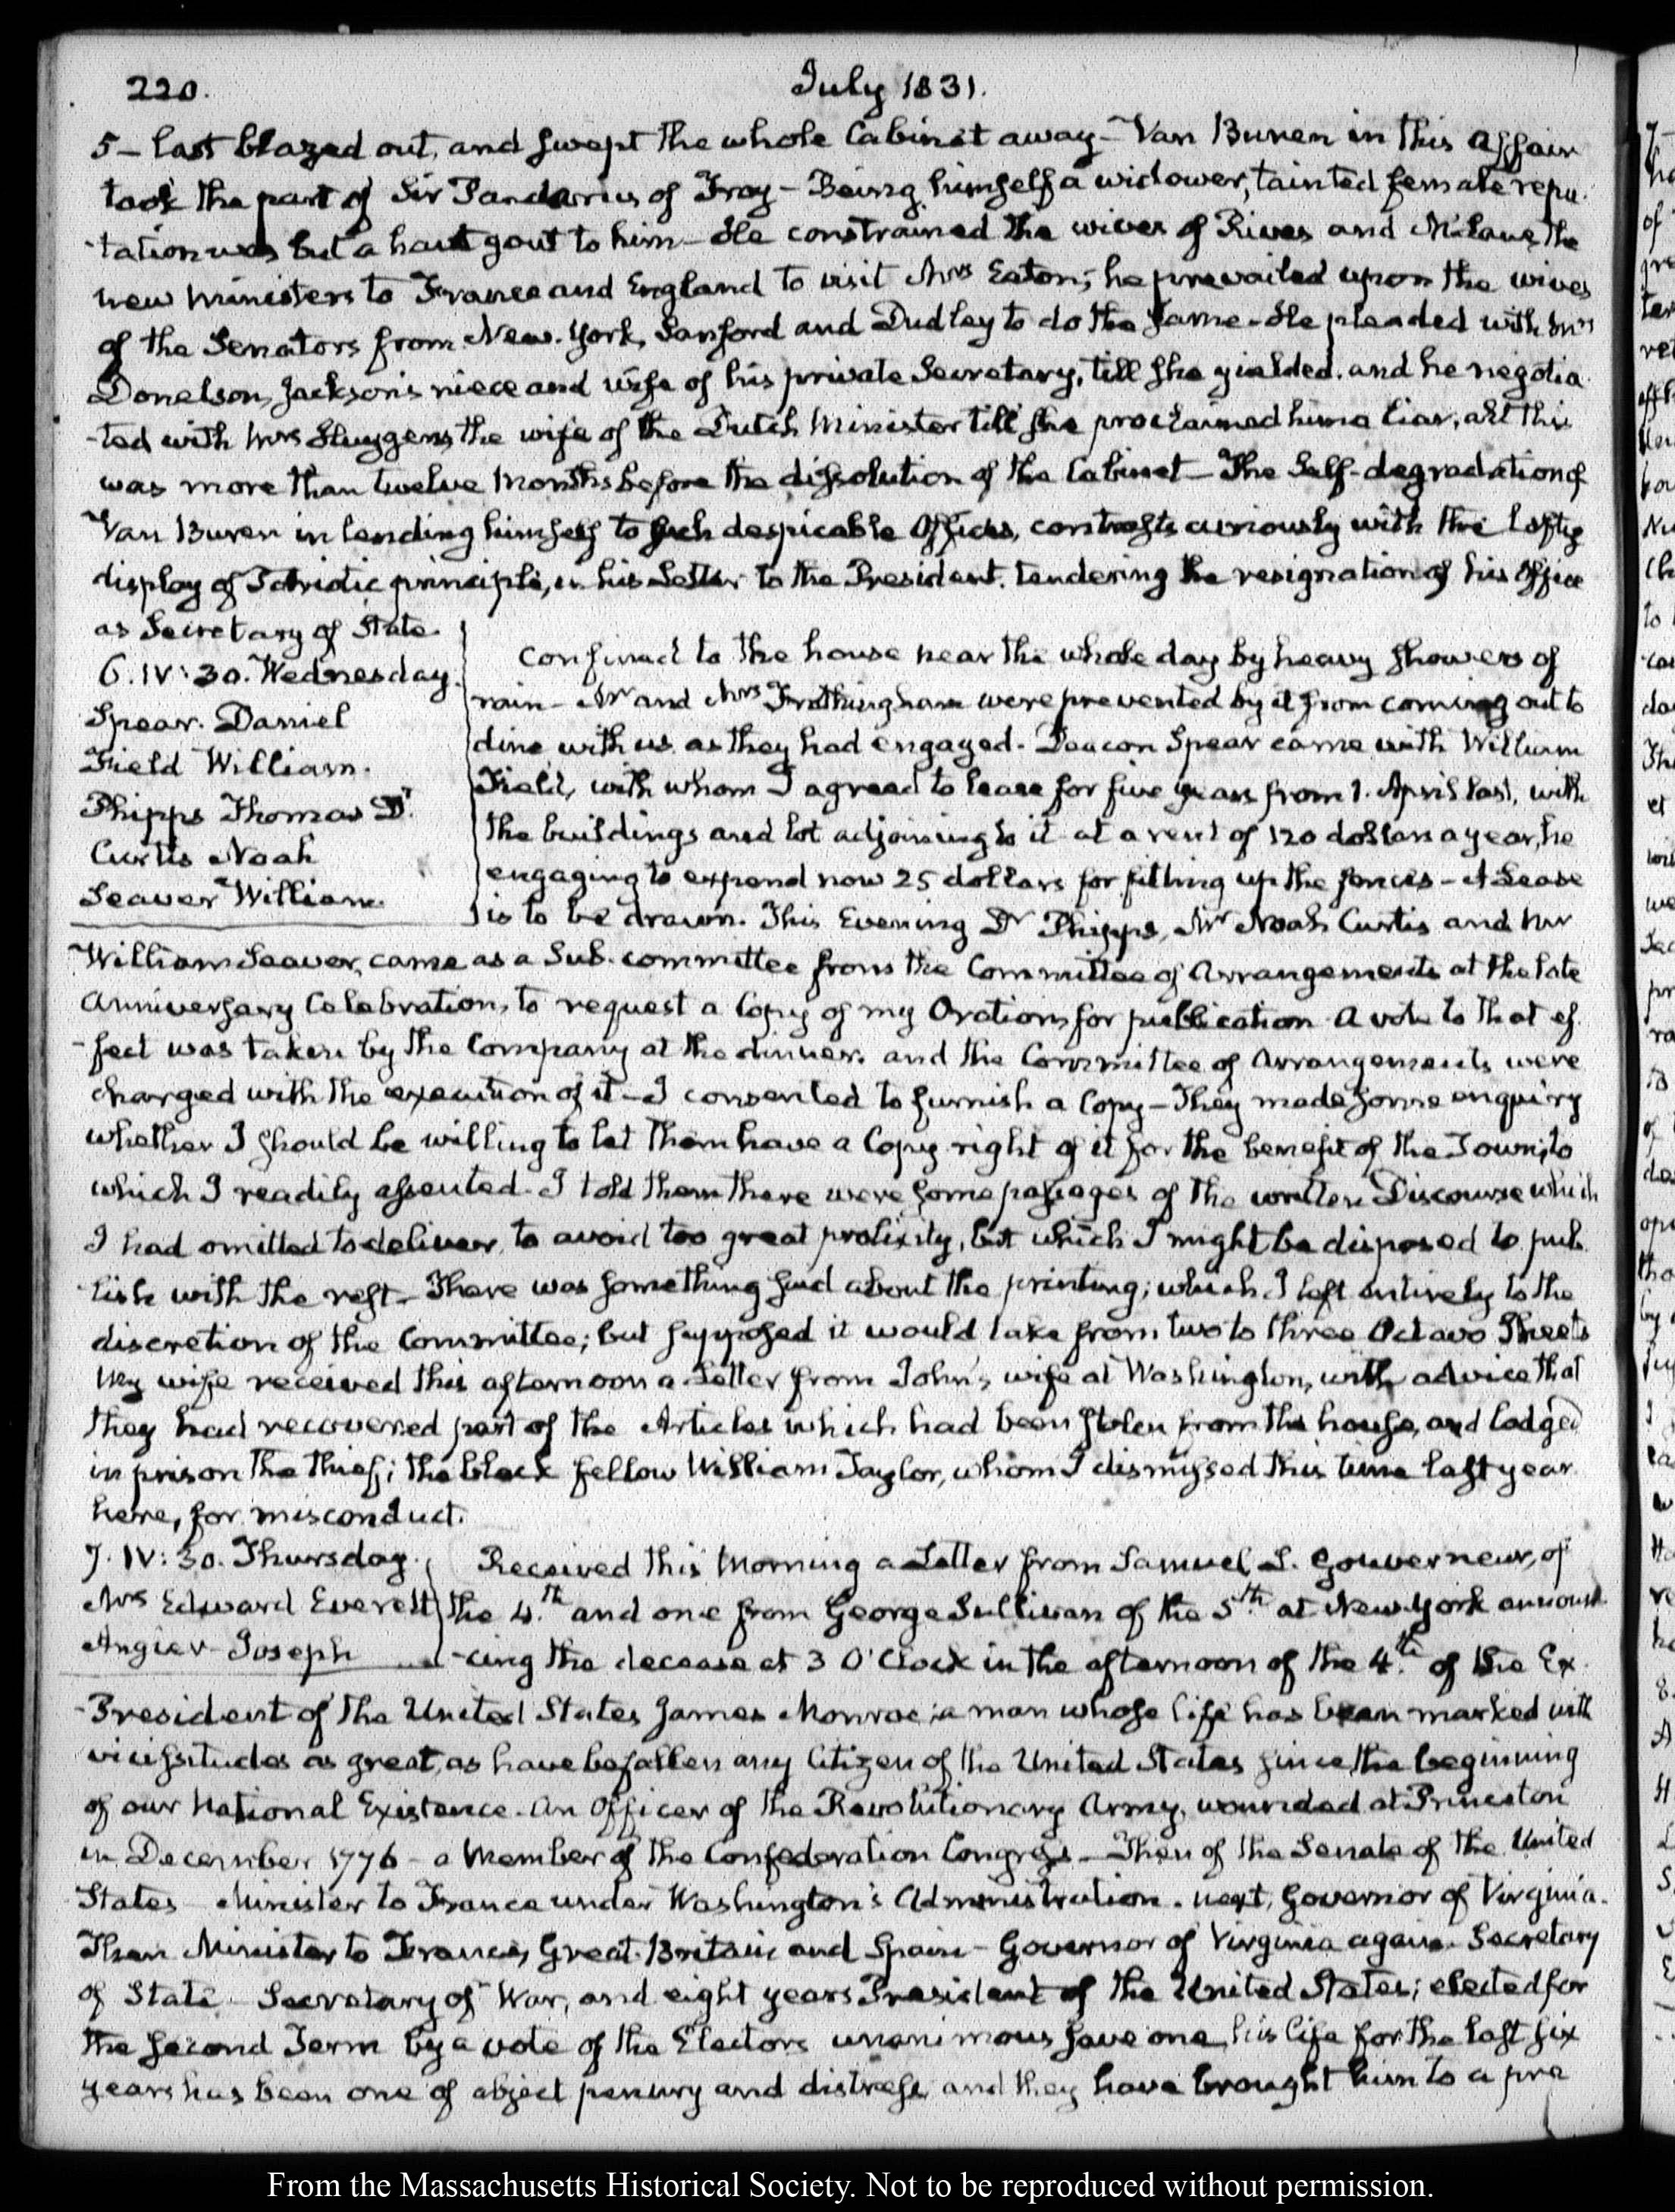 220.
July 1831.
5 – last blazed out, and swept the whole Cabinet away – Van Buren in this affair
took the part of Sir Pandarus of Troy – Being himself a widower, tainted female repu-
-tation was but a haut gout to him – He constrained the wives of Rives and McLane, the
new Ministers to France and England to visit Mrs Eaton; he prevailed upon the wives
of the Senators from New-York, Sanford and Dudley to do the same – He pleaded with Mrs
Donelson, Jackson's niece and wife of his private Secretary, till she yielded, and he negotia-
-ted with Mrs Huygens, the wife of the Dutch Minister till she proclaimed him a liar; all this
was more than twelve Months before the dissolution of the Cabinet – The Self-degradation of
Van Buren in lending himself to such despicable Offices, contrasts curiously with the lofty
display of Patriotic principle, in his Letter to the President, tendering the resignation of his Office
as Secretary of State.
6. IV:30. Wednesday.
Spear. Daniel
Field William.
Phipps Thomas Dr.
Curtis Noah
Seaver William.
Confined to the house near the whole day by heavy showers of
rain – Mr and Mrs Frothingham were prevented by it from coming out to
dine with us as they had engaged. Deacon Spear came with William
Field, with whom I agreed to lease for five years from 1. April last, with
the buildings and lot adjoining to it at a rent of 120 dollars a year, he
engaging to expend now 25 dollars for fitting up the fences – A Lease
is to be drawn. This Evening Dr Phipps, Mr Noah Curtis and Mr
William Seaver, came as a Sub-committee from the Committee of Arrangements at the late
Anniversary Celebration, to request a Copy of my Oration for publication A vote to that ef-
-fect was taken by the Company at the dinner, and the Committee of Arrangements were
charged with the execution of it – I consented to furnish a Copy – They made some enquiry
whether I should be willing to let them have a Copy-right of it for the benefit of the Town; to
which I readily assented. I told them there were some passages of the written Discourse which
I had omitted to deliver, to avoid too great prolixity, but which I might be disposed to pub-
-lish with the rest – There was something said about the printing; which I left entirely to the
discretion of the Committee; but supposed it would take from two to three Octavo Sheets
My wife received this afternoon a Letter from John's wife at Washington, with advice that
they had recovered part of the Articles which had been stolen from the house, and lodged
in prison the thief; the black fellow William Taylor, whom I dismissed this time last year
here, for misconduct.
7. IV:30. Thursday.
Mrs Edward Everett
Angier Joseph
Received this Morning a Letter from Samuel L. Gouverneur, of
the 4.th and one from George Sullivan of the 5.th at New-York announ-
-cing the decease at 3 O'Clock in the afternoon of the 4.th of the Ex-
-President of the United States James Monroe; a man whose life has been marked with
vicissitudes as great, as have befallen any Citizen of the United States since the beginning
of our National Existence. An Officer of the Revolutionary Army, wounded at Princeton
in December 1776 – a Member of the Confederation Congress – Then of the Senate of the United
States – Minister to France under Washington's Administration. next, Governor of Virginia.
Then Minister to France, Great-Britain and Spain – Governor of Virginia again. Secretary
of State – Secretary of War, and eight years President of the United States; elected for
the second Term by a vote of the Electors unanimous save one, his life for the last six
years has been one of abject penury and distress, and they have brought him to a pre
From the Massachusetts Historical Society. Not to be reproduced without permission.